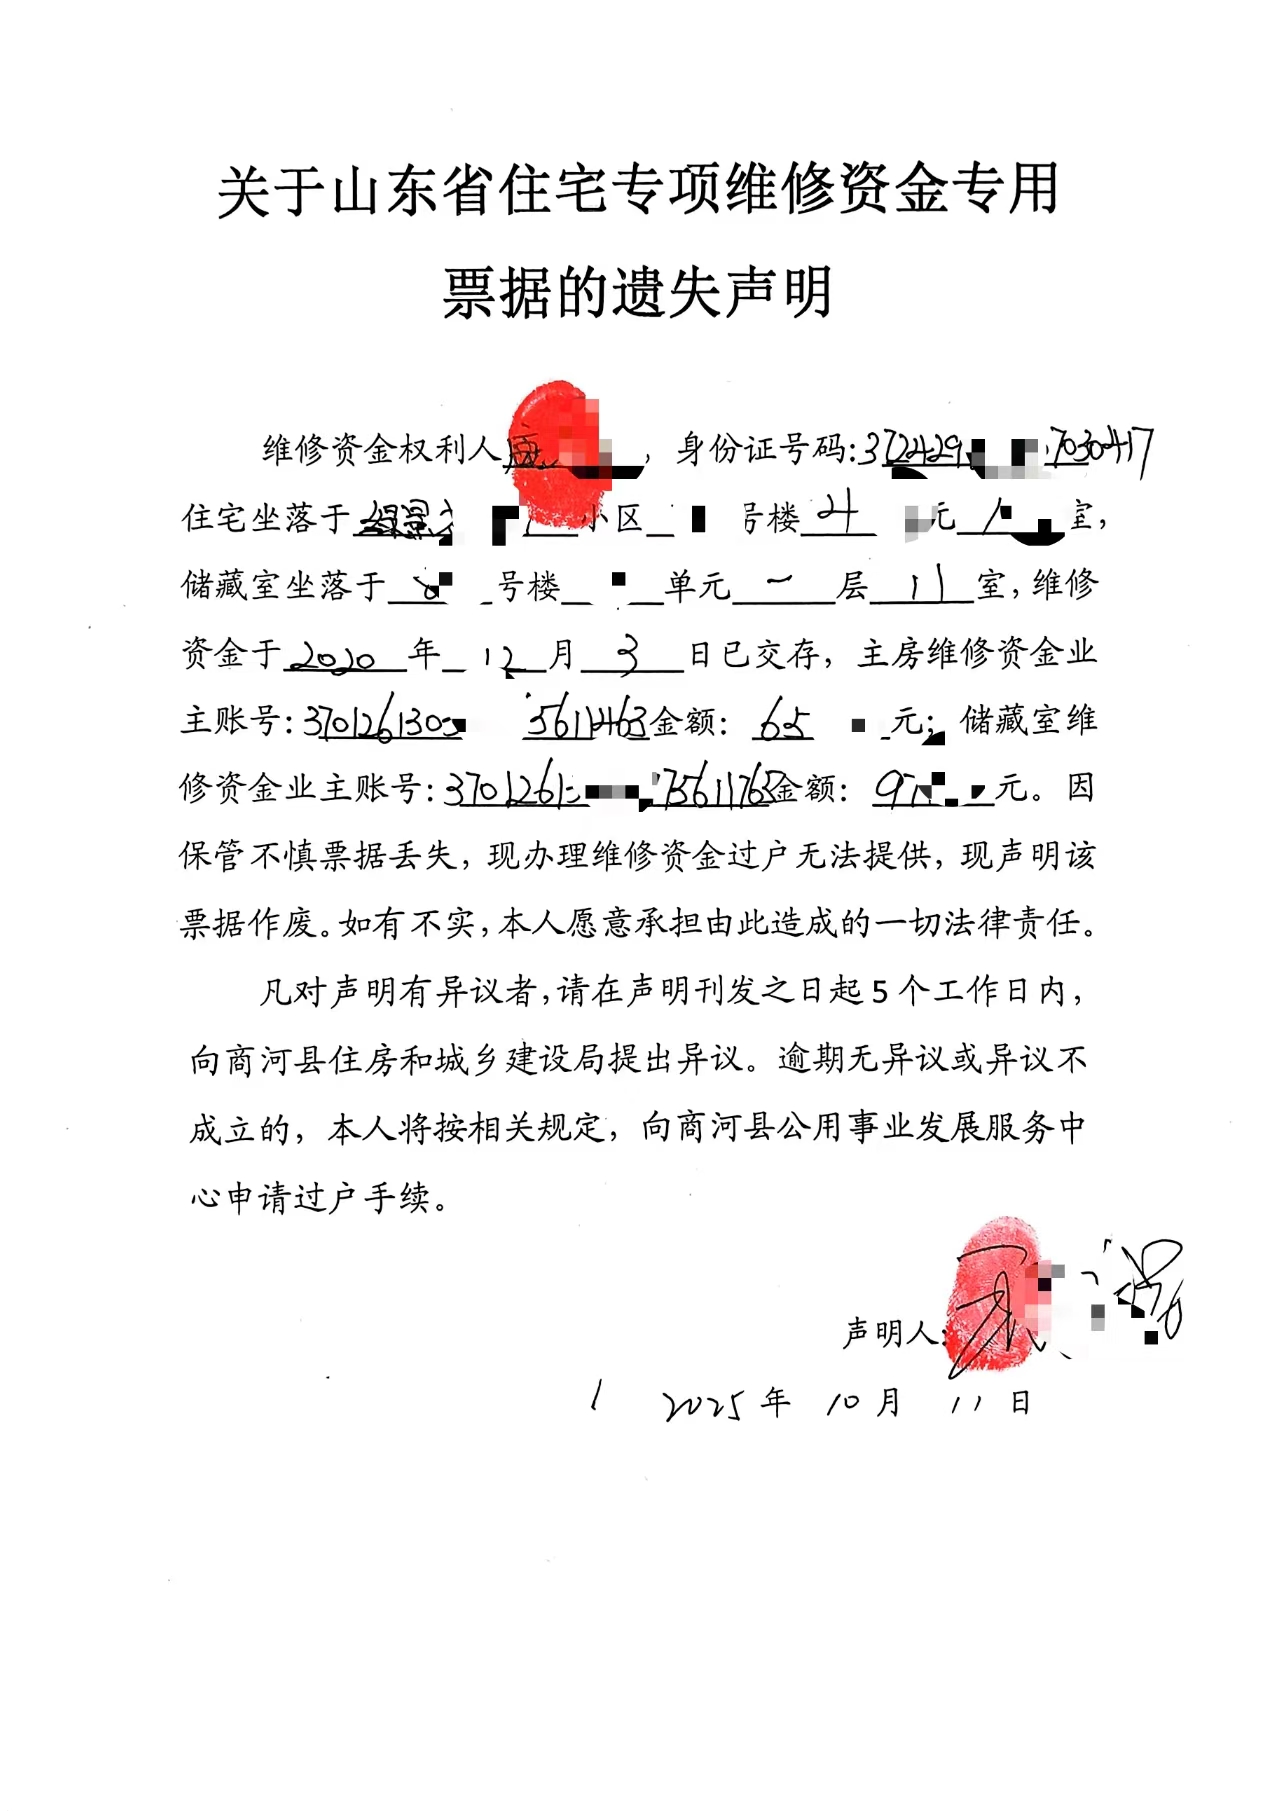 关于山东省住宅专项维修资金专用
票据的遗失声明
维修资金权利人，身份证号码：372429 7030417
住宅坐落于 小区 号楼 4 元 室，
储藏室坐落于 号楼 单元 一 层 11 室，维修
资金于 2020 年 12 月 3 日已交存，主房维修资金业
主账号：370126130 5611463金额：65 元；储藏室维
修资金业主账号：3701261 75611763金额：97 元。因
保管不慎票据丢失，现办理维修资金过户无法提供，现声明该
票据作废。如有不实，本人愿意承担由此造成的一切法律责任。
凡对声明有异议者，请在声明刊发之日起5个工作日内，
向商河县住房和城乡建设局提出异议。逾期无异议或异议不
成立的，本人将按相关规定，向商河县公用事业发展服务中
心申请过户手续。
声明人：
2025 年 10 月 11 日